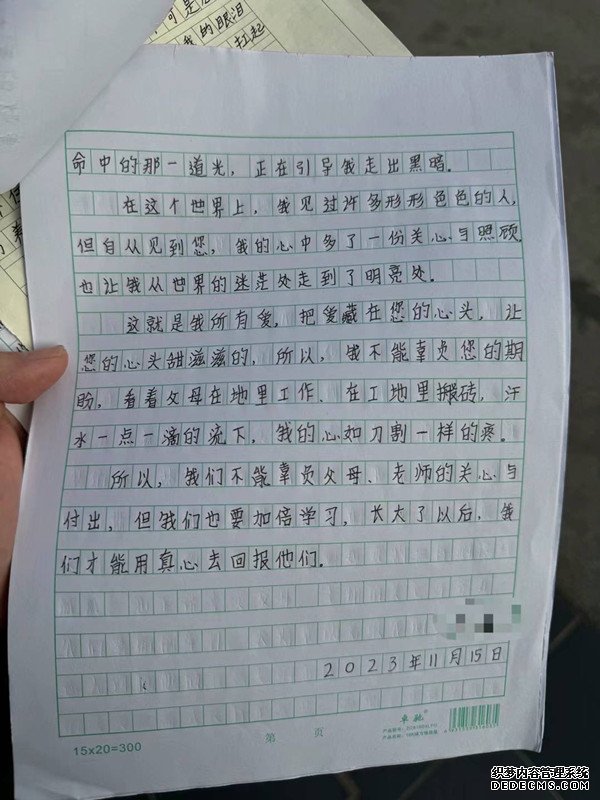 可是
我的眼泪
扛起
命中的那一道光，正在引导我走出黑暗。
在这个世界上，我见过许多形形色色的人，
但自从见到您，我的心中多了一份关心与照顾，
也让我从世界的迷茫处走到了明亮处。
这就是我所有爱，把爱藏在您的心头，让
您的心头甜滋滋的，所以，我不能辜负您的期
盼，看着父母在地里工作、在工地里搬砖，汗
水一点一滴的流下，我的心如刀割一样的疼。
所以，我们不能辜负父母、老师的关心与
付出，但我们也要加倍学习，长大了以后，我
们才能用真心去回报他们。
2023年11月15日
第 页
卓驰
15x20=300
织梦内容管理系统
DEDECMS.COM